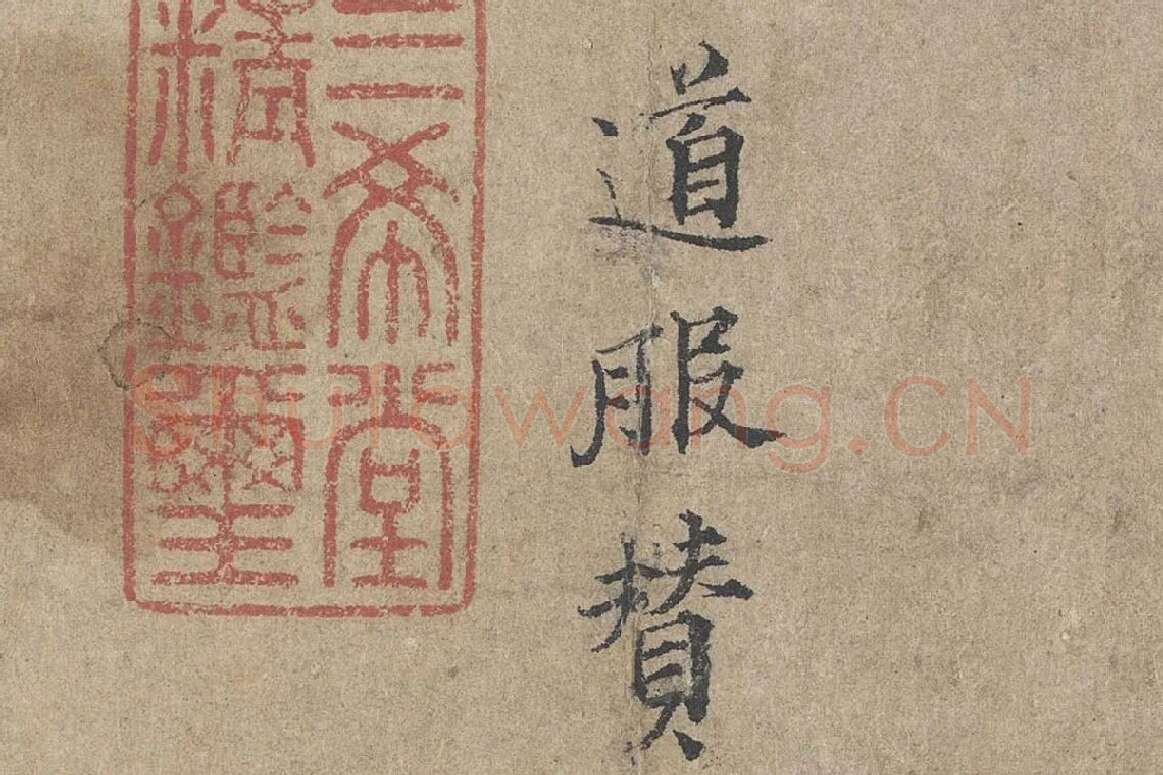 道服賛
三希堂
精鑑璽
shufawang.CN